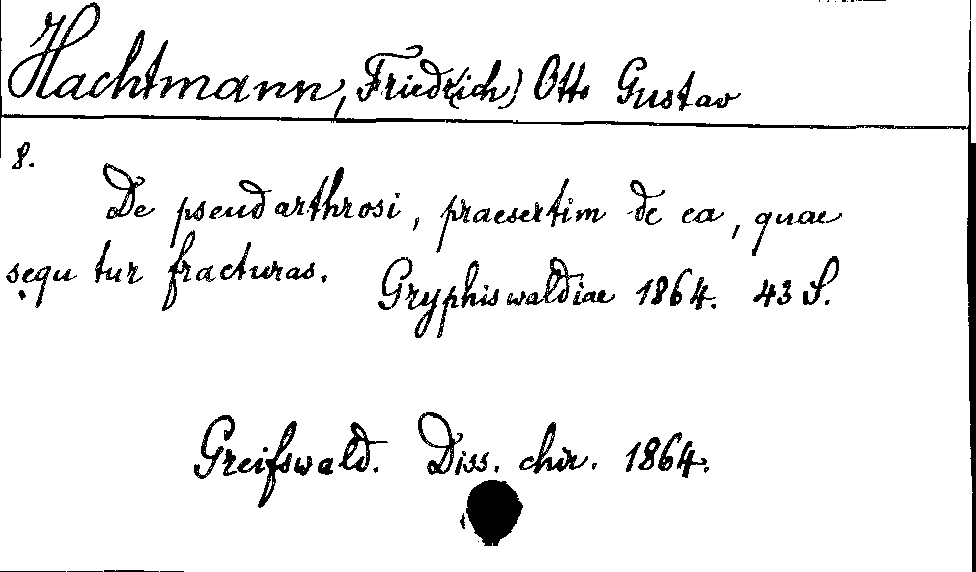 Hachtmann, Friedr(ich) Otto Gustav
8.
De pseudarthrosi, praesertim de ea, quae
sequ tur fracturas. Gryphiswaldiae 1864. 43 S.
Greifswald. Diss. chir. 1864.